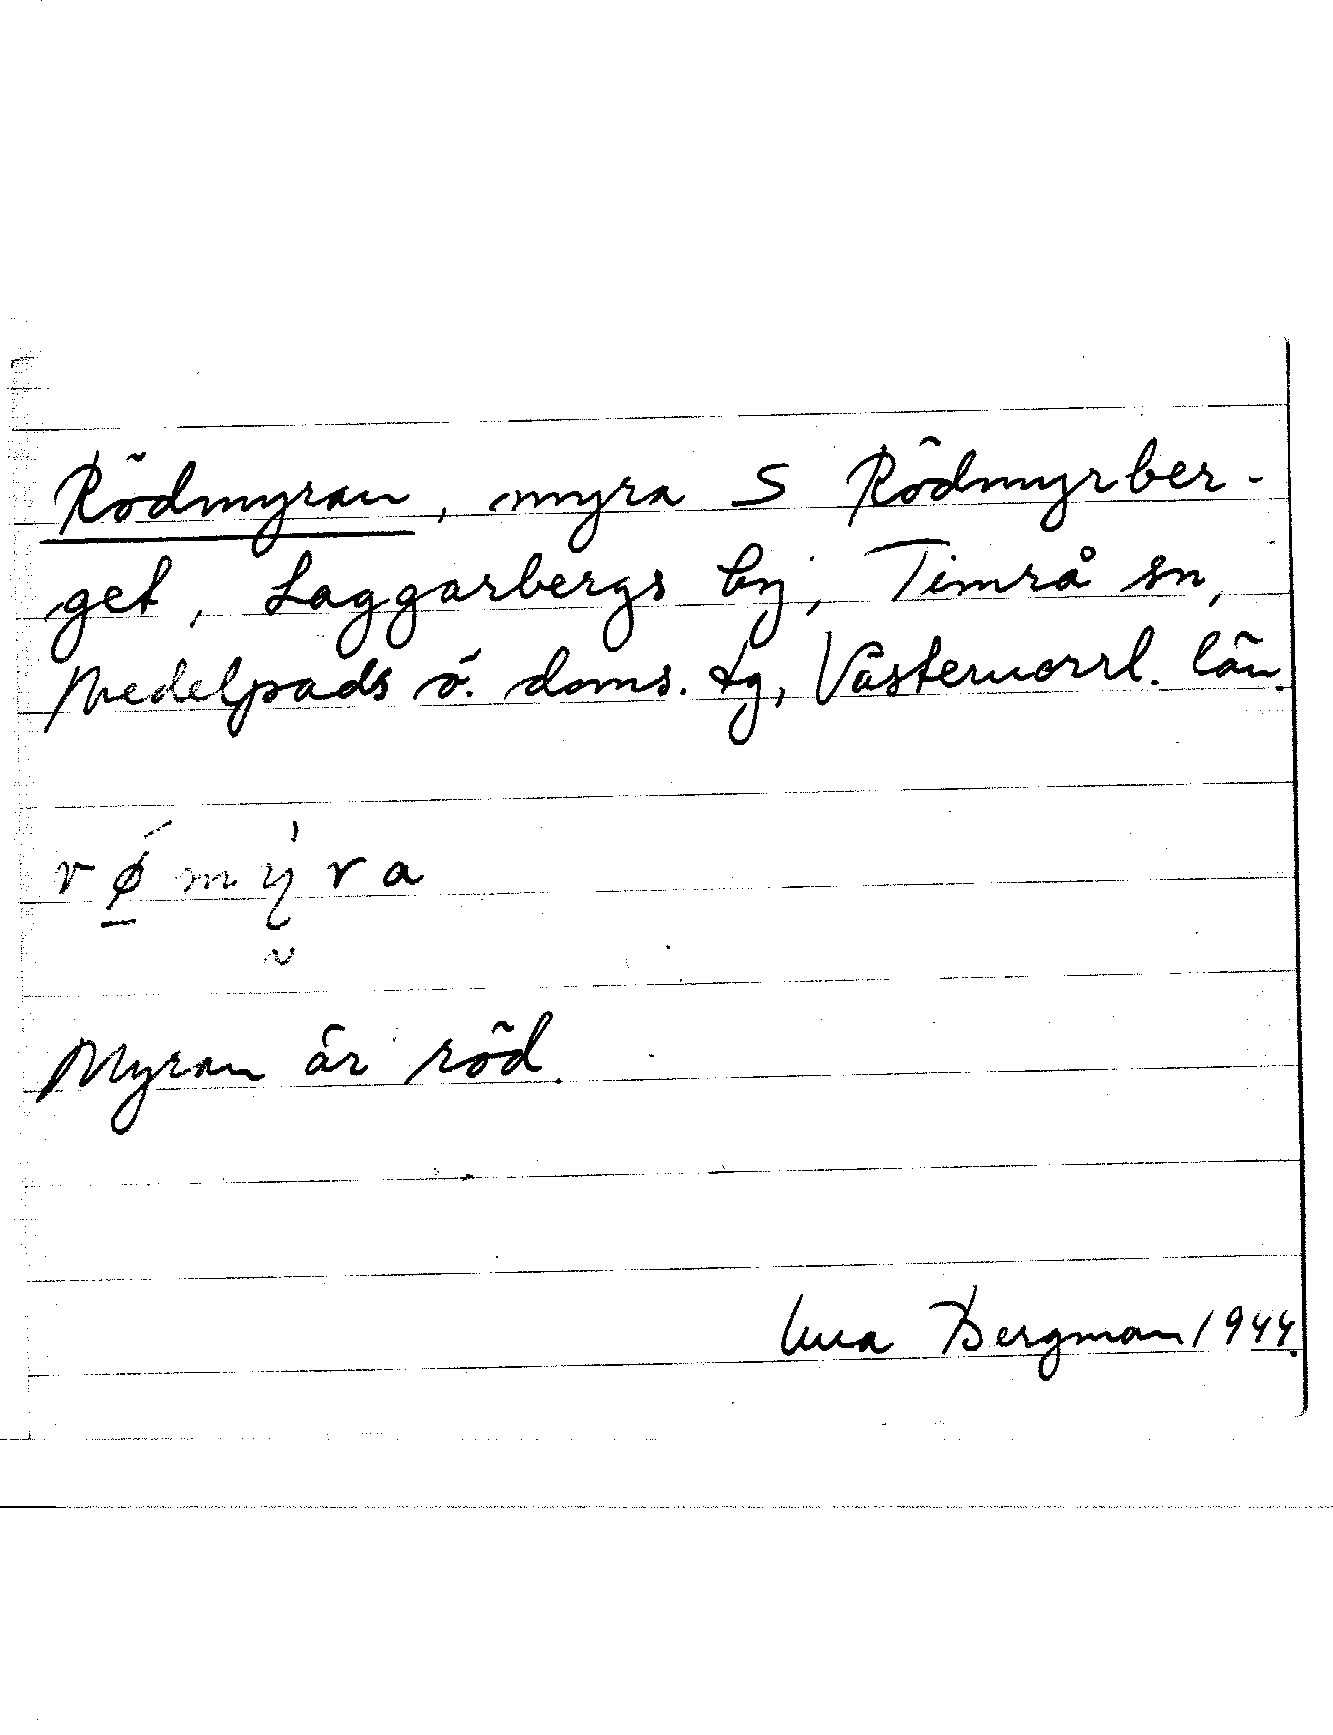 Rödmyran, myra S Rödmyrber-
get, Laggarbergs by, Timrå sn,
Medelpads ö. doms. tg, Västernorrl. län.
rømyra
Myran är röd.
Bergman 1944.